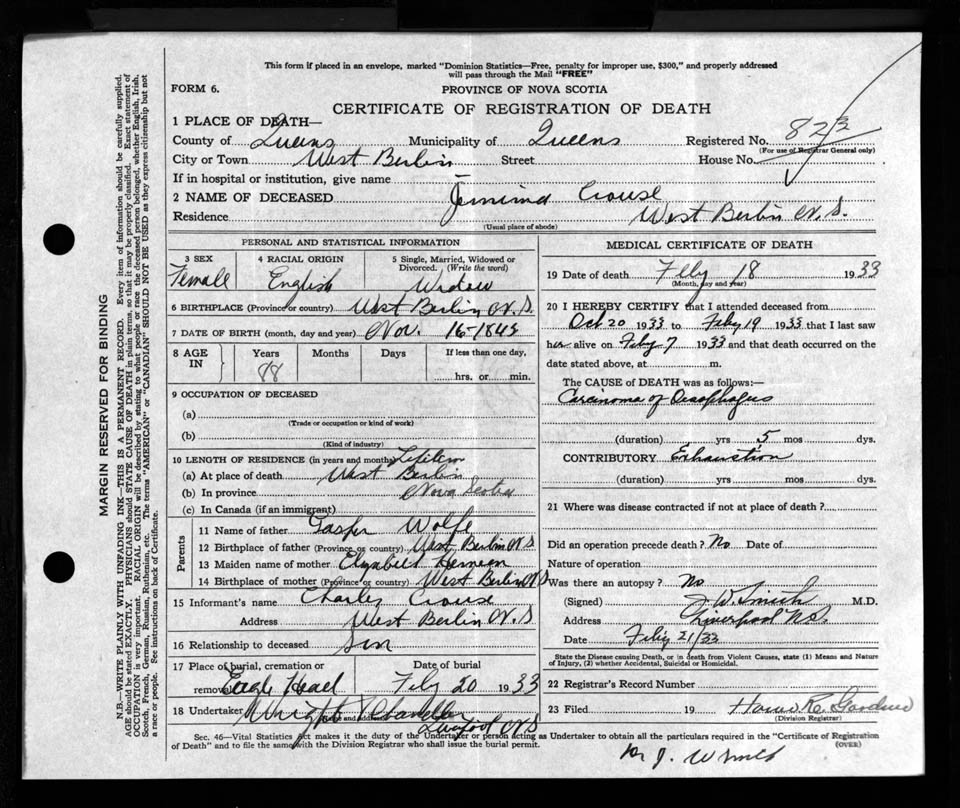 This form if placed in an envelope, marked "Dominion Statistics—Free, penalty for improper use, $300," and properly addressed
will pass through the Mail "FREE"
FORM 6.
PROVINCE OF NOVA SCOTIA
CERTIFICATE OF REGISTRATION OF DEATH
1 PLACE OF DEATH—
County of Queens Municipality of Queens Registered No. 82
(For use of Registrar General only)
City or Town West Berlin Street House No.
If in hospital or institution, give name
2 NAME OF DECEASED Jemima Crouse
Residence West Berlin N.S.
(Usual place of abode)
PERSONAL AND STATISTICAL INFORMATION
3 SEX 4 RACIAL ORIGIN 5 Single, Married, Widowed or
Divorced. (Write the word)
Female English Widow
6 BIRTHPLACE (Province or country) West Berlin N.S.
7 DATE OF BIRTH (month, day and year) Nov. 16-1845
8 AGE IN Years Months Days If less than one day,
88 hrs. or min.
9 OCCUPATION OF DECEASED
(a)
(Trade or occupation or kind of work)
(b)
(Kind of industry)
10 LENGTH OF RESIDENCE (in years and months) Lifetime
(a) At place of death West Berlin
(b) In province Nova Scotia
(c) In Canada (if an immigrant)
Parents
11 Name of father Casper Wolfe
12 Birthplace of father (Province or country) West Berlin N S
13 Maiden name of mother Elizabeth
14 Birthplace of mother (Province or country) West Berlin N S
15 Informant's name Charley Crouse
Address West Berlin N.S
16 Relationship to deceased Son
17 Place of burial, cremation or Date of burial
removal Eagle Head Feby 20 1933
18 Undertaker Wright Chandler
Name and address Liverpool N S
MEDICAL CERTIFICATE OF DEATH
19 Date of death Feby 18 1933
(Month, day and year)
20 I HEREBY CERTIFY that I attended deceased from
Oct 20 1933 to Feby 19 1933 that I last saw
her alive on Feby 7 1933 and that death occurred on the
date stated above, at m.
The CAUSE of DEATH was as follows:—
Carcinoma of Oesophagus
(duration) yrs 5 mos dys.
CONTRIBUTORY Exhaustion
(duration) yrs mos dys.
21 Where was disease contracted if not at place of death?
Did an operation precede death? No Date of
Nature of operation
Was there an autopsy? No
(Signed) J W Smith M.D.
Address Liverpool N.S.
Date Feby 21/33
State the Disease causing Death, or in death from Violent Causes, state (1) Means and Nature
of Injury, (2) whether Accidental, Suicidal or Homicidal.
22 Registrar's Record Number
23 Filed 19 R. Gardner
(Division Registrar)
Sec. 46—Vital Statistics Act makes it the duty of the Undertaker or person acting as Undertaker to obtain all the particulars required in the "Certificate of Registration
of Death" and to file the same with the Division Registrar who shall issue the burial permit.
(OVER)
Dr J. W Smith
MARGIN RESERVED FOR BINDING
N.B.—WRITE PLAINLY WITH UNFADING INK—THIS IS A PERMANENT RECORD. Every item of information should be carefully supplied.
AGE should be stated EXACTLY. PHYSICIANS should STATE CAUSE OF DEATH in plain terms, so that it may be properly classified. Exact statement of
OCCUPATION is very important. RACIAL ORIGIN will be described by stating to what people or race the deceased person belonged, whether English, Irish,
Scotch, French, German, Russian, Ruthenian, etc. The terms "AMERICAN" or "CANADIAN" SHOULD NOT BE USED as they express citizenship but not
a race or people. See instructions on back of Certificate.